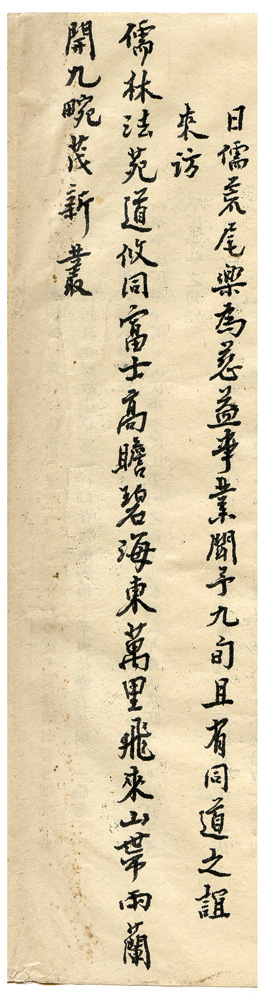 日儒荒尾樂為慈益事業聞予九旬且有同道之誼
來訪
儒林法苑道攸同富士高瞻碧海東萬里飛來山帶雨蘭
開九畹茂新叢